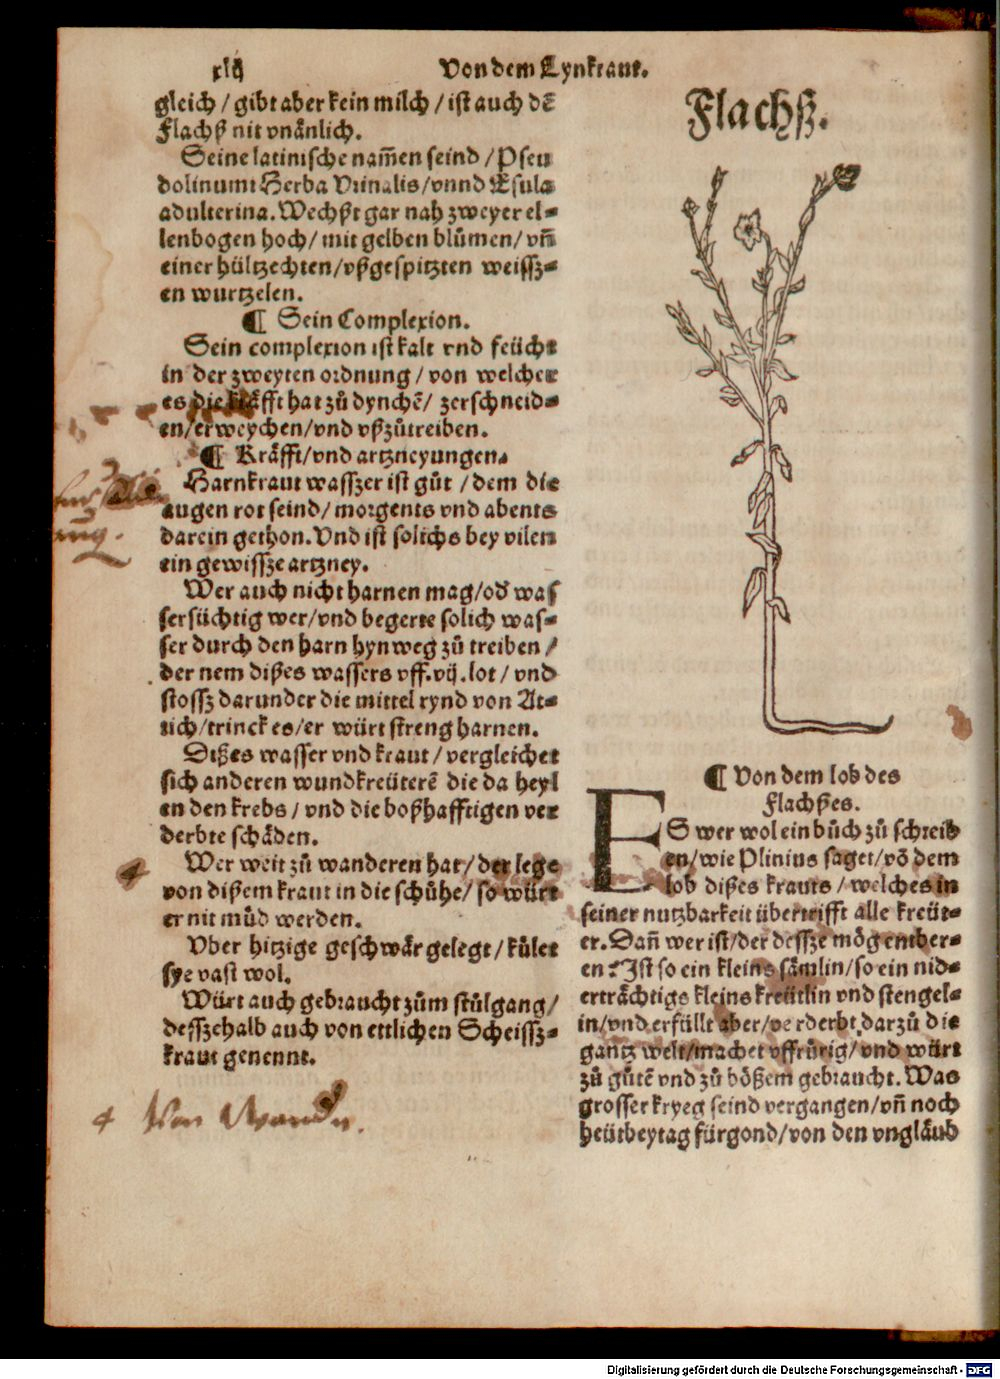 xlij
Von dem Lynkraut.
gleich / gibt aber kein milch / ist auch dē
Flachß nit vnånlich.
Seine latinische nam̄en seind / Pseu
dolinum: Herba Vrinalis / vnnd Esula
adulterina. Wechßt gar nah zweyer el⸗
lenbogen hoch / mit gelben blůmen / vñ
einer hültzechten / vßgespitzten weissz⸗
en wurtzelen.
¶ Sein Complexion.
Sein complexion ist kalt vnd feücht
in der zweyten ordnung / von welcher
es die kräfft hat zů dynchē / zerschneid⸗
en / erweychen / vnd vßzůtreiben.
¶ Kräfft / vnd artzneyungen.
Harnkraut wasszer ist gůt / dem die
augen rot seind / morgents vnd abents
darein gethon. Vnd ist solichs bey vilen
ein gewissze artzney.
Wer auch nicht harnen mag / od̓ was
sersüchtig wer / vnd begerte solich was⸗
ser durch den harn hynweg zů treiben /
der nem dißes wassers vff. vij. lot / vnd
stossz darunder die mittel rynd von At⸗
tich / trinck es / er würt streng harnen.
Dißes wasser vnd kraut / vergleichet
sich anderen wundkreüterē die da heyl
en den krebs / vnd die boßhafftigen ver
derbte schäden.
Wer weit zů wanderen hat / der lege
von dißem kraut in die schůhe / so würt
er nit müd werden.
Vber hitzige geschwär gelegt / kůlet
sye vast wol.
Würt auch gebraucht zům stůlgang /
desszehalb auch von ettlichen Scheissz⸗
kraut genennt.
Von
Flachß.
¶ Von dem lob des
Flachßes.
ES wer wol ein bůch zů schreib
en / wie Plinius saget / vō dem
lob dißes krauts / welches in
seiner nutzbarkeit übertrifft alle kreüt⸗
er. Dañ wer ist / der dessze mög ember⸗
en? Ist so ein kleins sämlin / so ein nid⸗
erträchtigs kleins kreütlin vnd stengel⸗
in / vnd erfüllt aber / verderbt darzů die
gantz welt / machet vffrůrig / vnd würt
zů gůtē vnd zů bößem gebraucht. Was
grosser kryeg seind vergangen / vñ noch
heütbeytag fürgond / von den vngläub
Digitalisierung gefördert durch die Deutsche Forschungsgemeinschaft - DFG